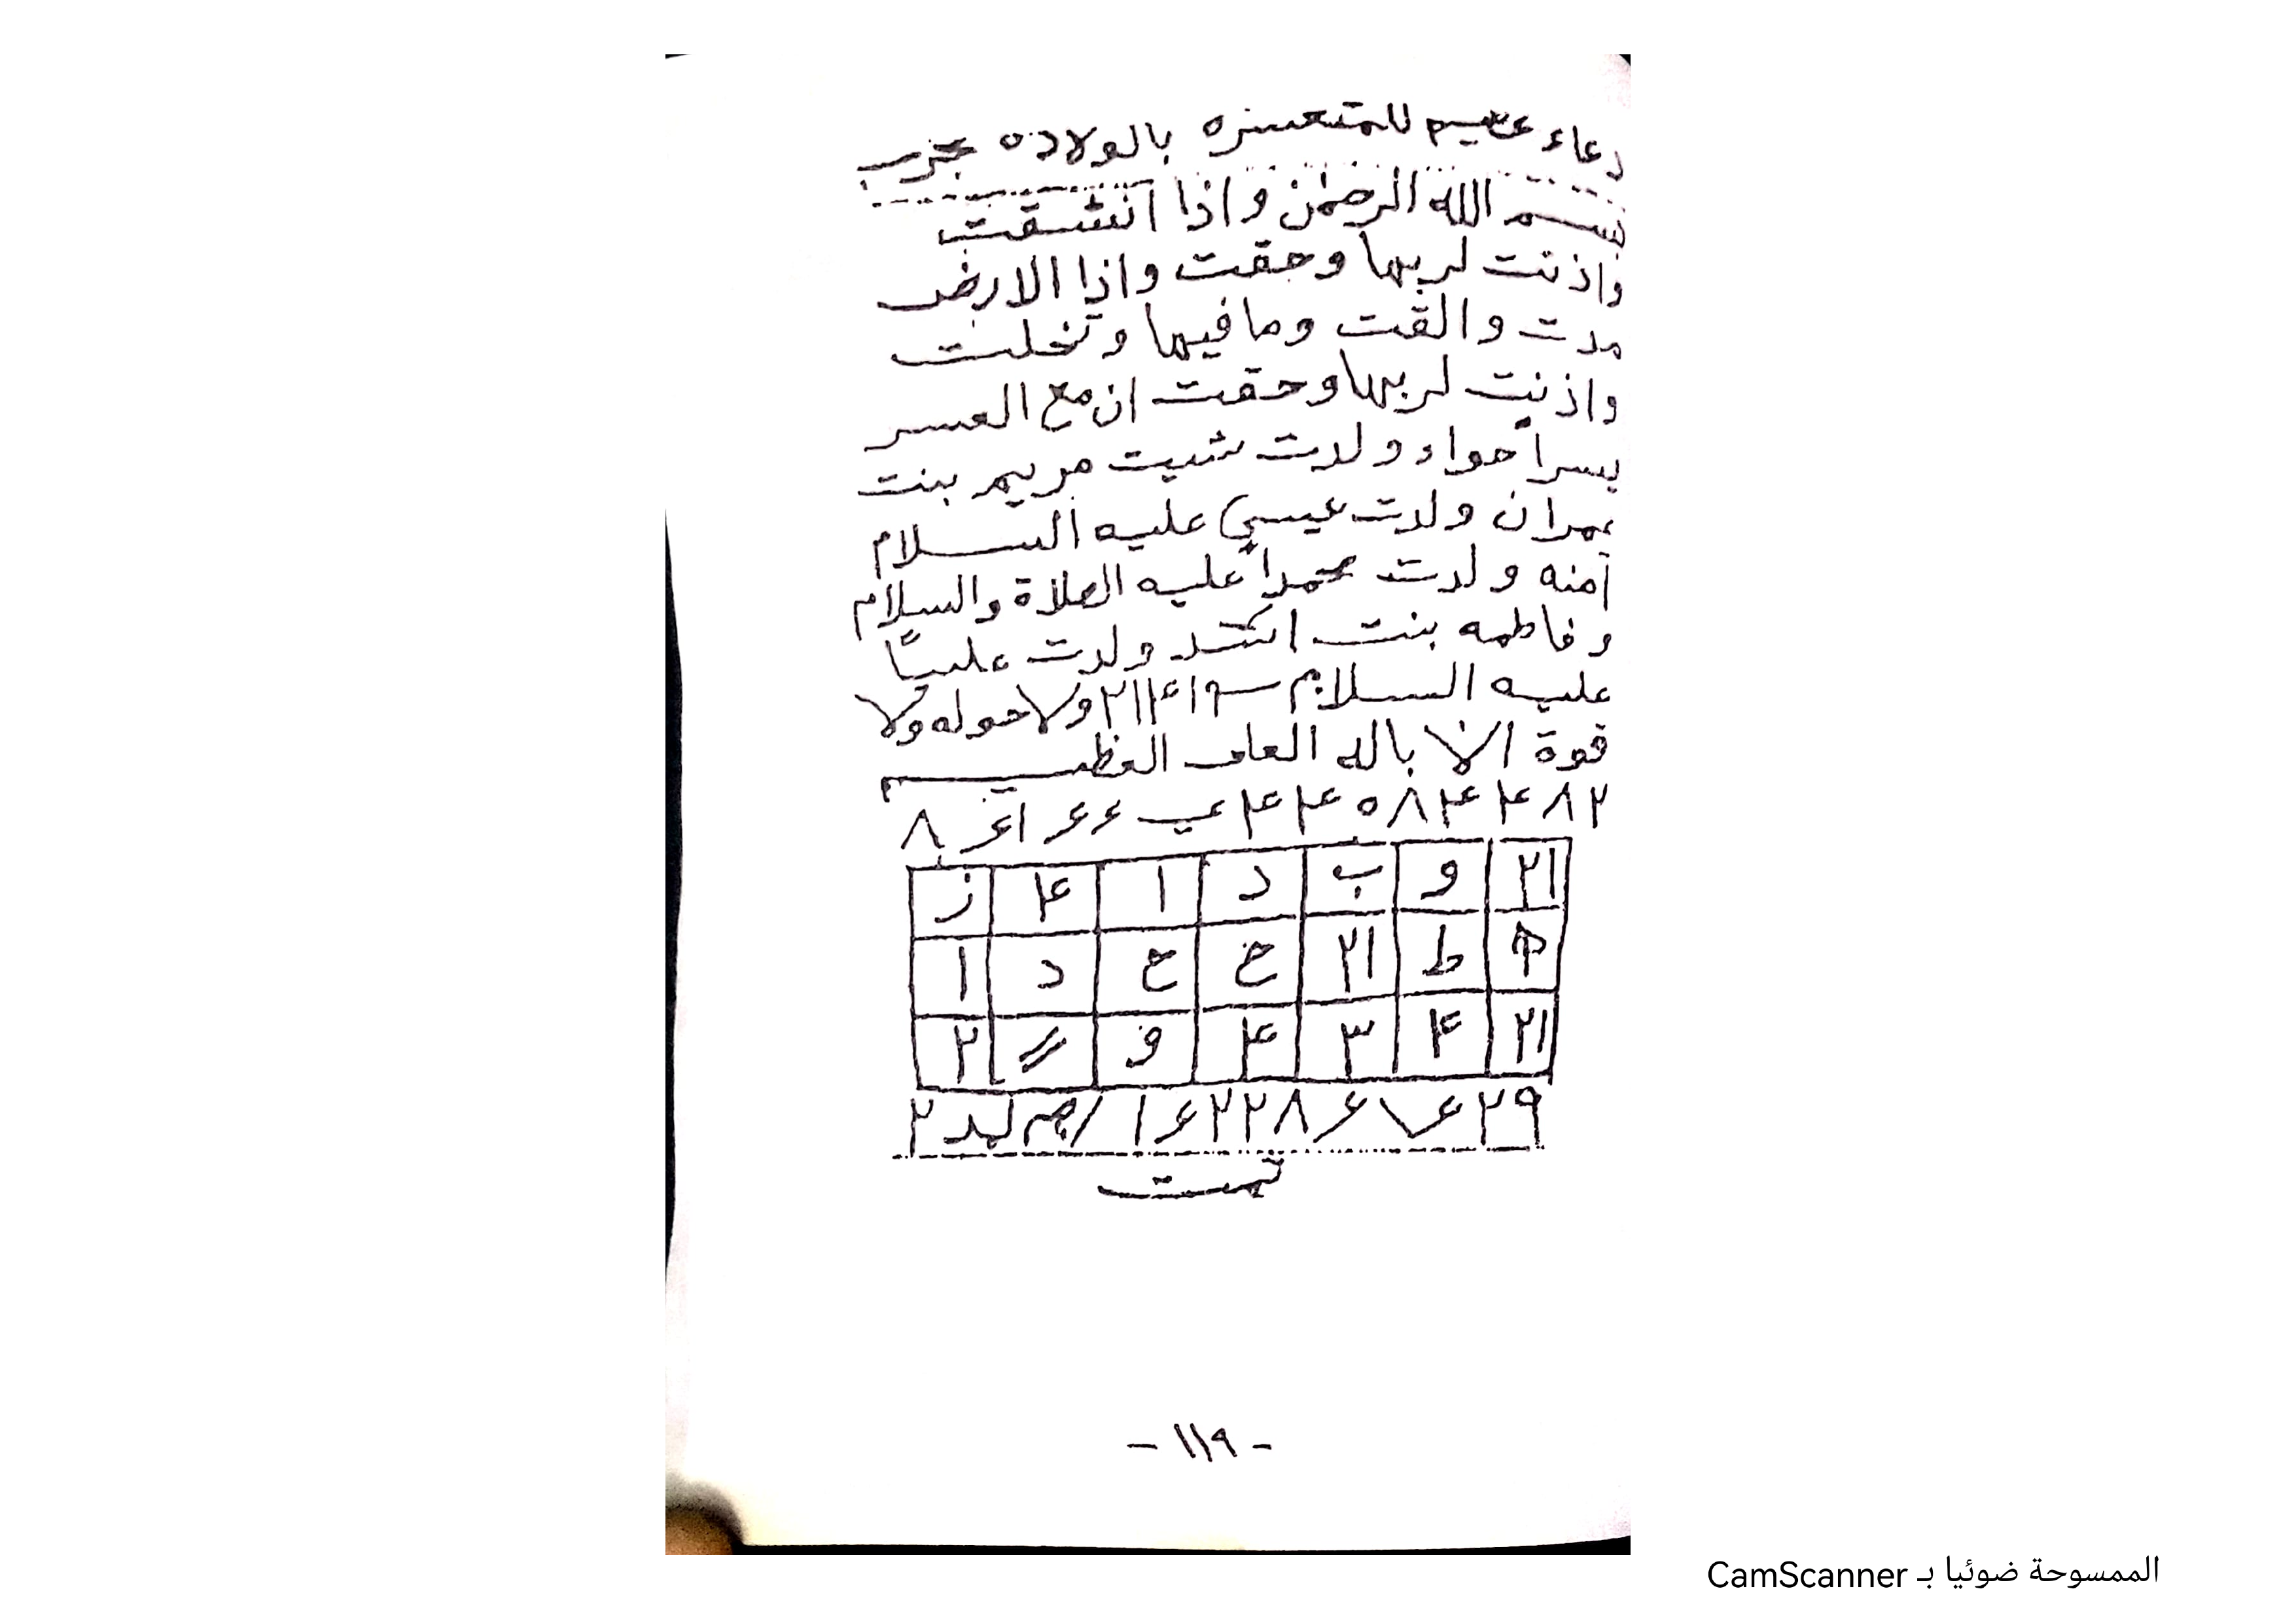 دعاء عظيم للمتعسره بالولاده مجرب
بسم الله الرحمن واذا انشقت
واذنت لربها وحقت واذا الارض
مدت والقت وما فيها وتخلت
واذنت لربها وحقت ان مع العسر
يسراً حواء ولدت شيت مريم بنت
عمران ولدت عيسى عليه السلام
آمنه ولدت محمداً عليه الصلاة والسلام
وفاطمه بنت ولدت علياً
عليه السلام ولا حوله ولا
قوة الا بالله العلي العظيم
٢١ و ب د ا ۴ ز
ط ٢١ خ ح د ا
٢١ ۴ ٣ ۴ و ٢
تمت
- ١١٩ -
الممسوحة ضوئيا بـ CamScanner